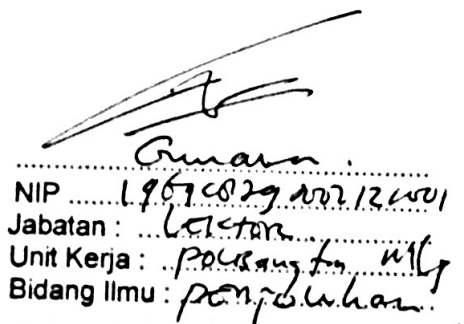 Gunawan
NIP 196908292002121001
Jabatan : LEKTOR
Unit Kerja : Polbangtan Mlg
Bidang Ilmu : penyuluhan